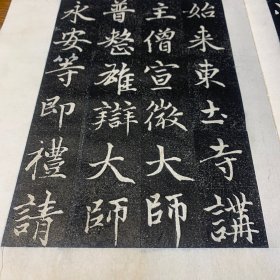 始来東土寺講
主僧宣微大師
普雄辯大師
永安等即禮請